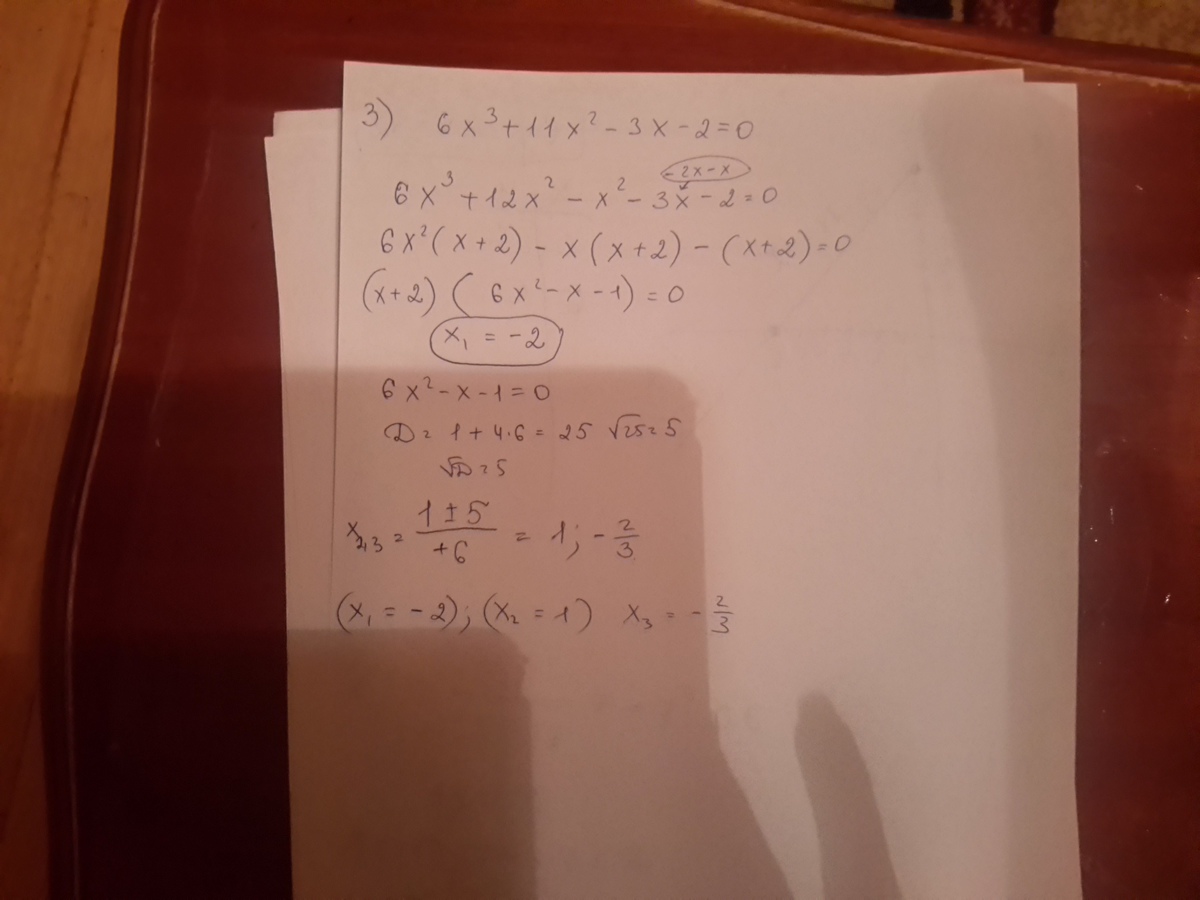 3) 6x³+11x²-3x-2=0
-2x-x
6x³+12x²-x²-3x-2=0
6x²(x+2)-x(x+2)-(x+2)=0
(x+2)(6x²-x-1)=0
x₁=-2
6x²-x-1=0
D=1+4·6=25 √25=5
√D=5
x₂,₃=(1±5)/(+6)=1;-2/3
(x₁=-2);(x₂=1) x₃=-2/3